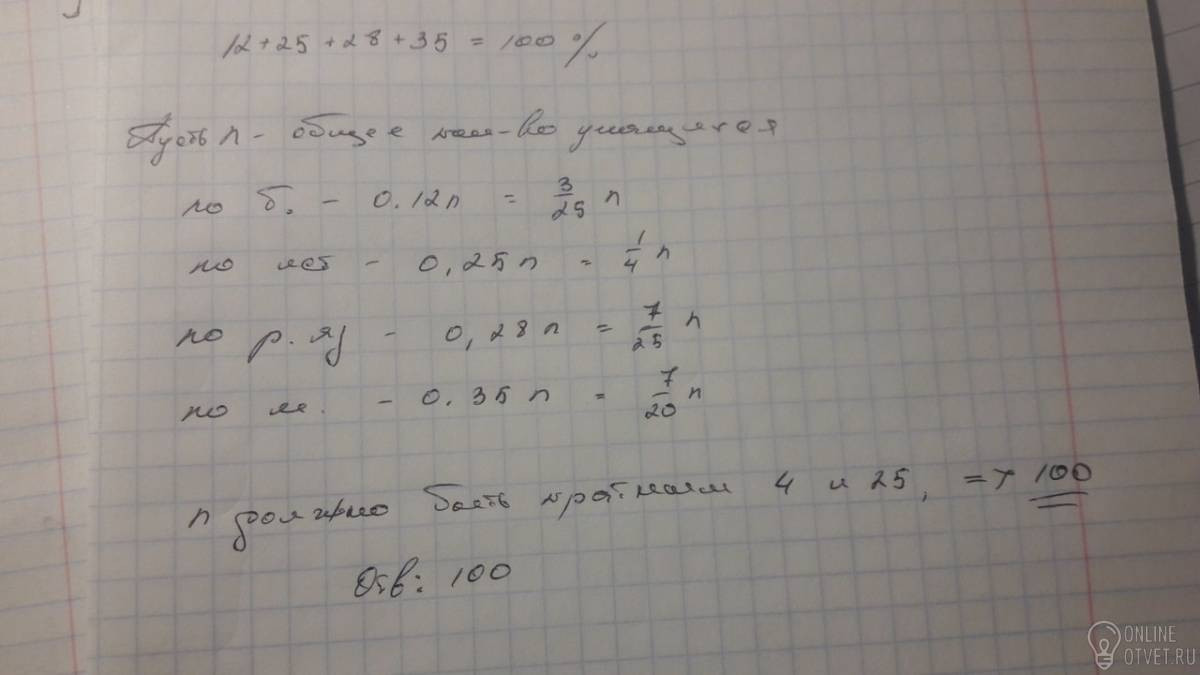 12 + 25 + 28 + 35 = 100 %
Пусть n - общее кол-во учащихся
по б. - 0.12n = 3/25 n
по ист - 0,25n = 1/4 n
по р. яз - 0,28n = 7/25 n
по м. - 0.35n = 7/20 n
n должно быть кратным 4 и 25, => 100
Отв: 100
ONLINE
OTVET.RU